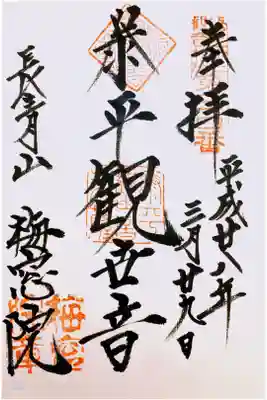 奉拝
平成廿八年
三月廿九日
業平観世音
長青山
梅窓院